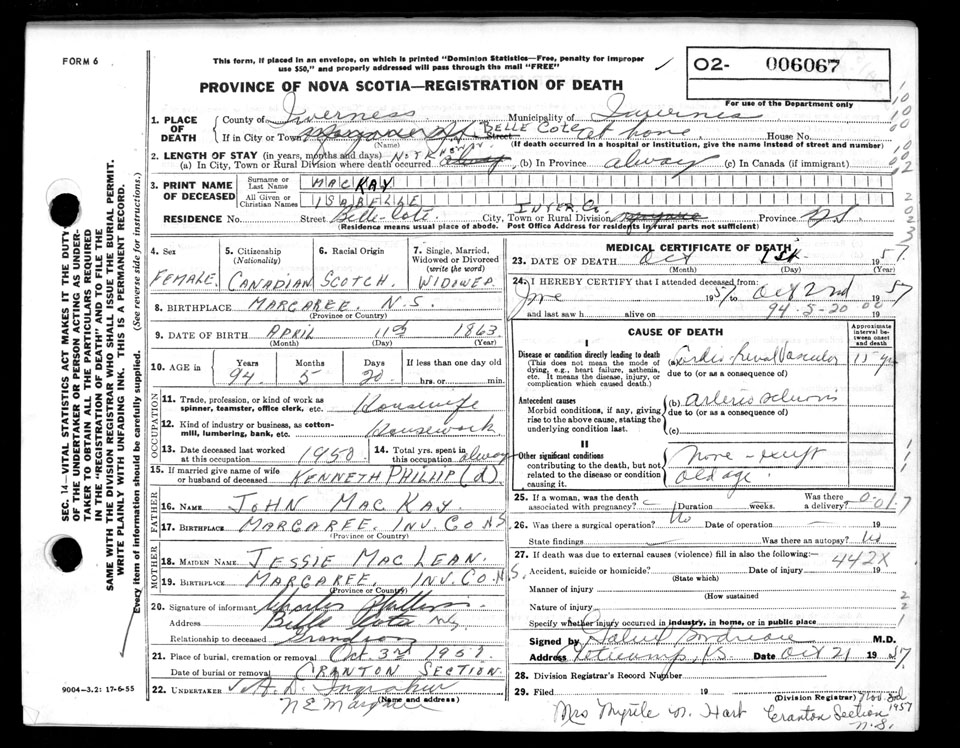 FORM 6
This form, if placed in an envelope, on which is printed "Dominion Statistics—Free, penalty for improper
use $50," and properly addressed will pass through the mail "FREE"
O2- 006067
For use of the Department only
PROVINCE OF NOVA SCOTIA—REGISTRATION OF DEATH
SEC. 14—VITAL STATISTICS ACT MAKES IT THE DUTY
OF THE UNDERTAKER OR PERSON ACTING AS UNDER-
TAKER TO OBTAIN ALL THE PARTICULARS REQUIRED
IN THE "REGISTRATION OF DEATH" AND TO FILE THE
SAME WITH THE DIVISION REGISTRAR WHO SHALL ISSUE THE BURIAL PERMIT.
WRITE PLAINLY WITH UNFADING INK. THIS IS A PERMANENT RECORD.
Every item of information should be carefully supplied. (See reverse side for instructions.)
1. PLACE OF DEATH
County of Inverness Municipality of Inverness
If in City or Town Street BELLE COTE at home House No.
(Name) (If death occurred in a hospital or institution, give the name instead of street and number)
2. LENGTH OF STAY (in years, months and days)
(a) In City, Town or Rural Division where death occurred NOT KNOWN (b) In Province always (c) In Canada (if immigrant)
3. PRINT NAME OF DECEASED
Surname or Last Name MACKAY
All Given or Christian Names ISABELLE
RESIDENCE No. Street Belle-Cote. City, Town or Rural Division INVER. Co. Province NS
(Residence means usual place of abode. Post Office Address for residents in rural parts not sufficient)
4. Sex FEMALE
5. Citizenship (Nationality) CANADIAN
6. Racial Origin SCOTCH
7. Single, Married, Widowed or Divorced (write the word) WIDOWED
8. BIRTHPLACE MARGAREE N.S.
(Province or Country)
9. DATE OF BIRTH APRIL 11th 1863
(Month) (Day) (Year)
10. AGE in Years 94 Months 5 Days 20 If less than one day old hrs. or min.
OCCUPATION
11. Trade, profession, or kind of work as spinner, teamster, office clerk, etc. Housewife
12. Kind of industry or business, as cotton-mill, lumbering, bank, etc. Housework
13. Date deceased last worked at this occupation 1950.
14. Total yrs. spent in this occupation always
15. If married give name of wife or husband of deceased KENNETH PHILLIP (d)
FATHER
16. NAME JOHN MAC KAY
17. BIRTHPLACE MARGAREE. INV. CO NS
(Province or Country)
MOTHER
18. MAIDEN NAME JESSIE MAC LEAN.
19. BIRTHPLACE MARGAREE. INV. CO. N.S.
(Province or Country)
20. Signature of informant Charles
Address Belle Cote N.S.
Relationship to deceased Grandson
21. Place of burial, cremation or removal Oct. 3rd 1957
Date of burial or removal CRANTON SECTION
22. UNDERTAKER
N E Margaree
(Name and address)
9004—3.2: 17-6-55
MEDICAL CERTIFICATE OF DEATH
23. DATE OF DEATH Oct 1st 1957
(Month) (Day) (Year)
24. I HEREBY CERTIFY that I attended deceased from:
1957 to Oct 2nd 1957
and last saw h alive on 19
94-5-20
CAUSE OF DEATH
Approximate interval between onset and death
I
Disease or condition directly leading to death
(This does not mean the mode of dying, e.g., heart failure, asthenia, etc. It means the disease, injury, or complication which caused death.)
(a) Vascular 15 yrs
due to (or as a consequence of)
Antecedent causes
Morbid conditions, if any, giving rise to the above cause, stating the underlying condition last.
(b) arteriosclerosis
due to (or as a consequence of)
(c)
II
Other significant conditions
contributing to the death, but not related to the disease or condition causing it.
None - except
old age.
25. If a woman, was the death associated with pregnancy? Duration weeks. Was there a delivery?
26. Was there a surgical operation? No Date of operation 19
State findings Was there an autopsy? No
27. If death was due to external causes (violence) fill in also the following:— 442X
Accident, suicide or homicide? Date of injury 19
(State which)
Manner of injury
(How sustained)
Nature of injury
Specify whether injury occurred in industry, in home, or in public place
Signed by M.D.
Address Cheticamp, N.S. Date Oct 21 1957
28. Division Registrar's Record Number
29. Filed 19
(Division Registrar)
Mrs Myrtle M. Hart Cranton Section
N.S.
1957